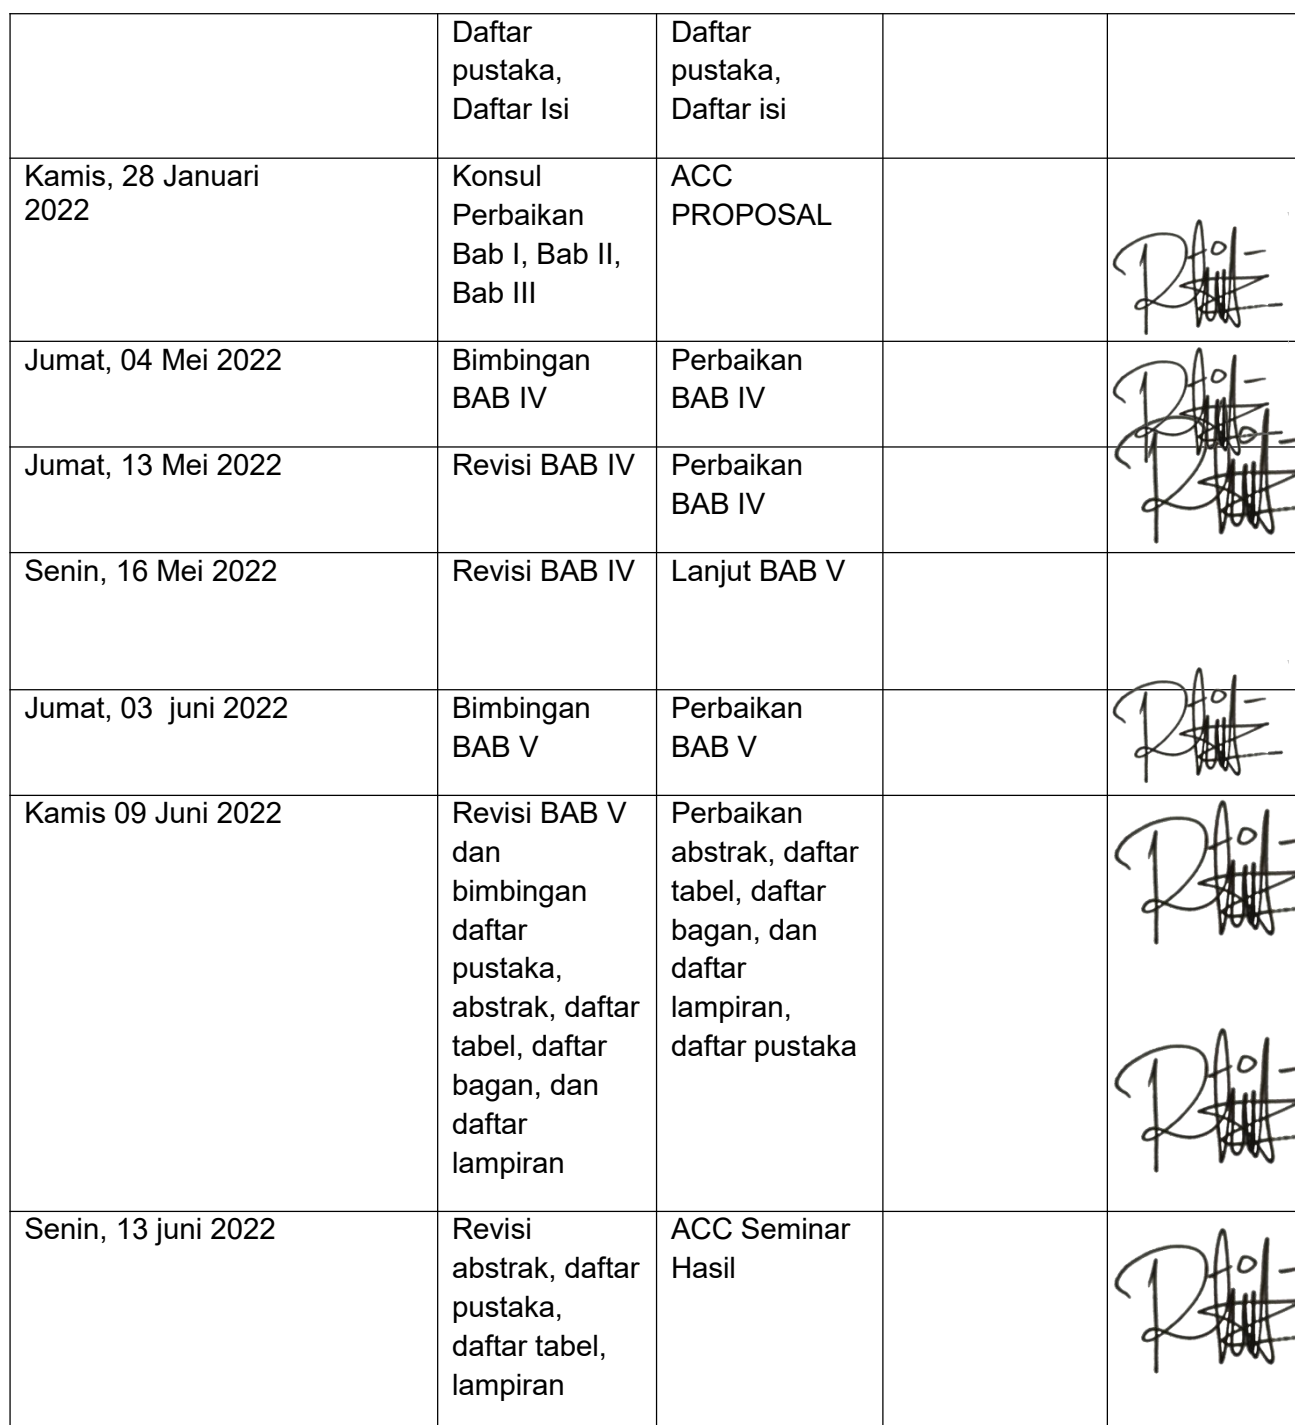 Daftar
pustaka,
Daftar Isi
Daftar
pustaka,
Daftar isi
Kamis, 28 Januari
2022
Konsul
Perbaikan
Bab I, Bab II,
Bab III
ACC
PROPOSAL
Jumat, 04 Mei 2022
Bimbingan
BAB IV
Perbaikan
BAB IV
Jumat, 13 Mei 2022
Revisi BAB IV
Perbaikan
BAB IV
Senin, 16 Mei 2022
Revisi BAB IV
Lanjut BAB V
Jumat, 03  juni 2022
Bimbingan
BAB V
Perbaikan
BAB V
Kamis 09 Juni 2022
Revisi BAB V
dan
bimbingan
daftar
pustaka,
abstrak, daftar
tabel, daftar
bagan, dan
daftar
lampiran
Perbaikan
abstrak, daftar
tabel, daftar
bagan, dan
daftar
lampiran,
daftar pustaka
Senin, 13 juni 2022
Revisi
abstrak, daftar
pustaka,
daftar tabel,
lampiran
ACC Seminar
Hasil